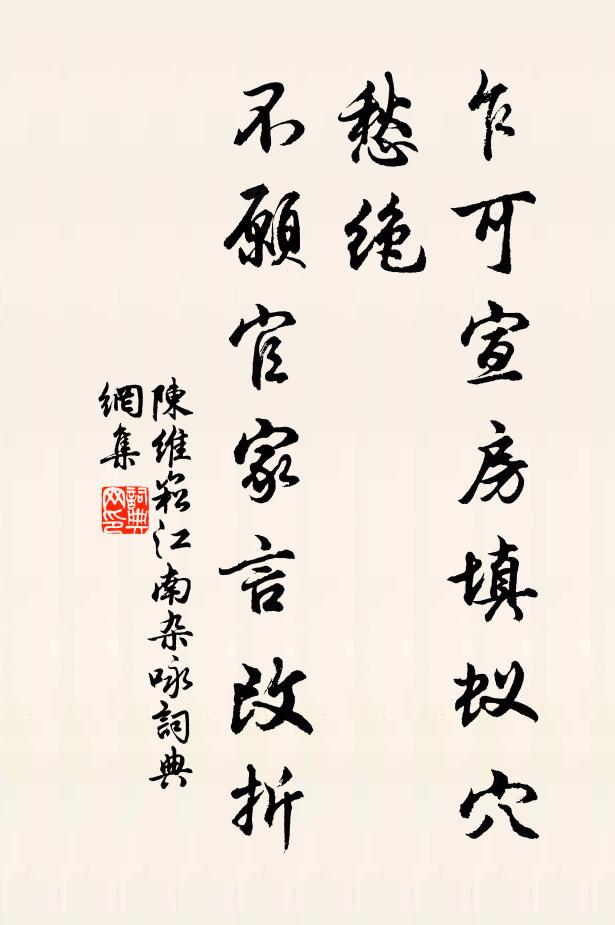 乍可宣房填蚁穴
愁绝
不願官家言改折
陳維崧江南杂咏詞典
網集
詞典
网印